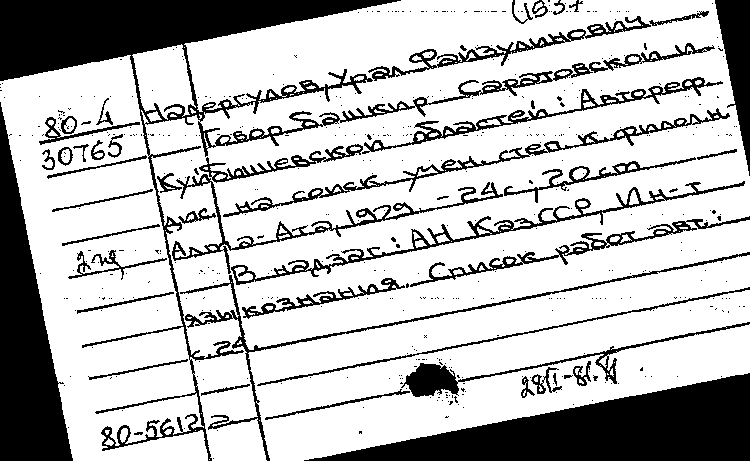 (1637
Надергулов, Урал Файзулинович.
80-4 Говор башкир Саратовской и
30765 Куйбышевской областей: Автореф.
дис. на соиск. учен. степ. к. филол.н.-
Алма-Ата, 1979. - 24с; 20 см
В надзаг.: АН КазССР, Ин-т
языкознания. Список работ авт.:
с. 24.
28/I-81.
80-5612 а